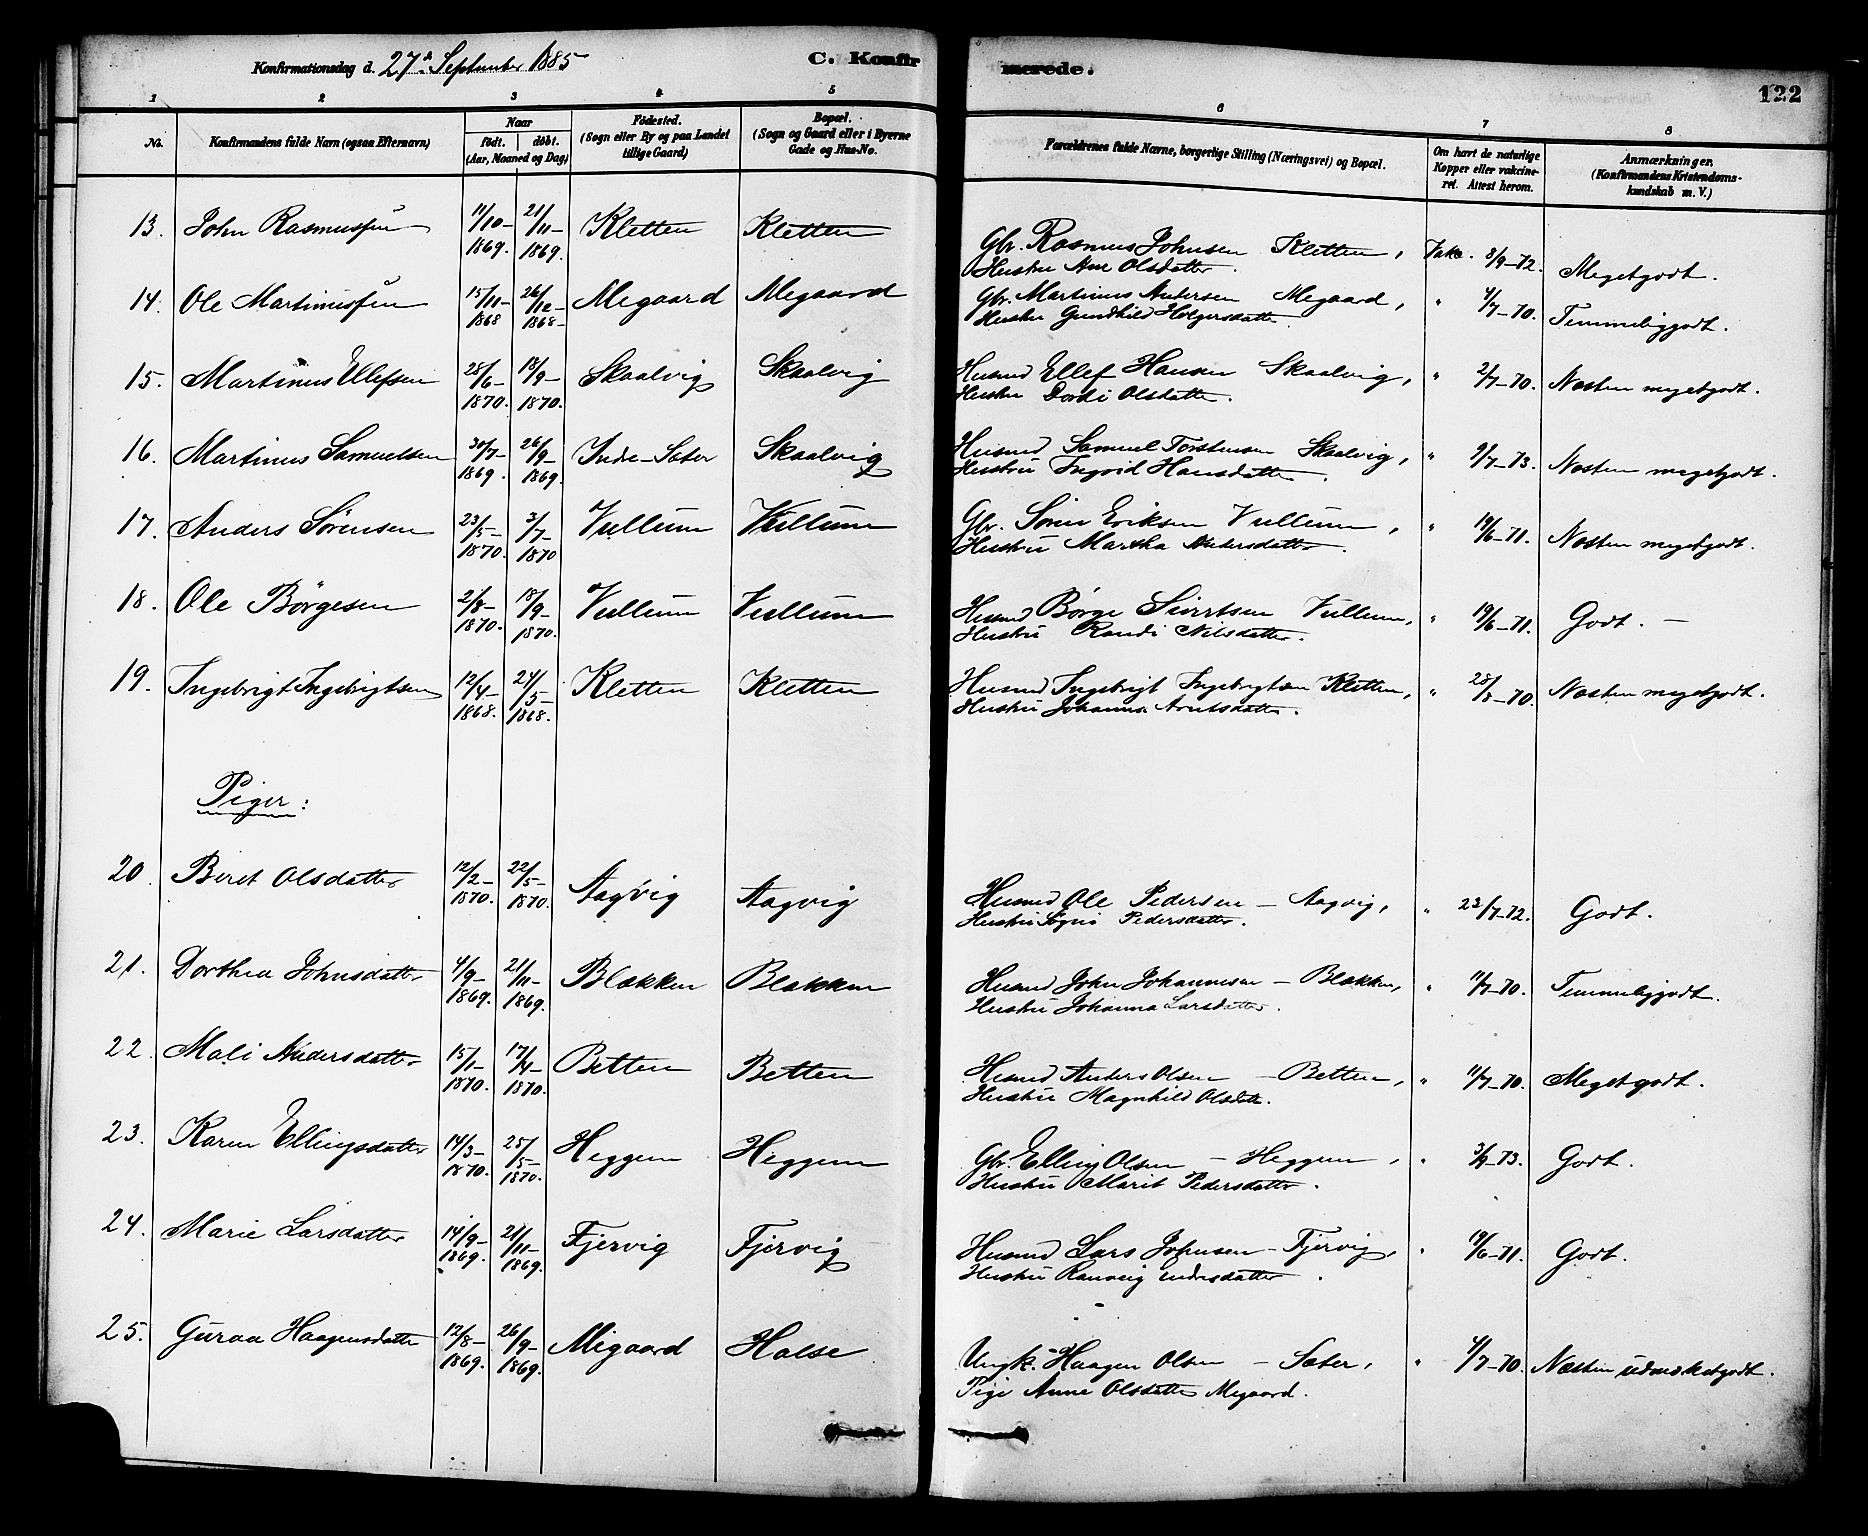 Konfirmationsdag d. 27de September 1885
C. Konfir merede.
122
1 2 3 4 5 6 7 8
No.
Konfirmandens fulde Navn (ogsaa Efternavn)
Naar
født. døbt.
(Aar, Maaned og Dag)
Fødested.
(Sogn eller By og paa Landet
tillige Gaard)
Bopæl.
(Sogn og Gaard eller i Byerne
Gade og Hus-No.
Forældrenes fulde Navne, borgerlige Stilling (Næringsvei) og Bopæl.
Om havt de naturlige
Kopper eller vakcine-
ret. Attest herom.
Anmærkninger.
(Konfirmandens Kristendoms-
kundskab m. V.)
13. John Rasmussen 11/10-1869. 21/11-1869. Kletten Kletten Gbr. Rasmus Johnsen Kletten, Vakc. 8/9-72. Megetgodt.
Hustru Ane Olsdatter.
14. Ole Martinussen 15/11-1868 26/12-1868- Megaard Megaard Gbr. Martinus Andersen Megaard, " 4/7-70. Temmeliggodt.
Hustru Gundhild Holgersdatter
15. Martinus Ellefsen 28/6-1870. 18/9-1870. Skaalvig Skaalvig Husmd Ellef Hansen Skaalvig, " 2/7-70. Næsten megetgodt.
Hustru Dordi Olsdatter.
16. Martinus Samuelsen 30/7-1869. 26/9-1869. Indre-Sæter Skaalvig Husmd Samuel Torstensen Skaalvig, " 9/7-73. Næsten megetgodt.
Hustru Ingrid Hansdatter.
17. Anders Sørensen 23/5-1870. 3/7-1870 Vullum Vullum Gbr. Søren Eriksen Vullum, " 19/6-71. Næsten megetgodt.
Hustru Martha Andersdatter.
18. Ole Børgesen 2/8-1870. 18/9-1870. Vullum Vullum Husmd Børge Sivertsen Vullum, " 19/6-71. Godt. -
Hustru Randi Nilsdatter.
19. Ingebrigt Ingebrigtsen 12/4-1868. 21/5-1868. Kletten Kletten Husmd Ingebrigt Ingebrigtsen Kletten, " 28/8-70. Næsten megetgodt.
Hustru Johanna Arntsdatter.
Piger:
20. Beret Olsdatter 12/2-1870. 22/5-1870. Aagvig Aagvig Husmd Ole Pedersen - Aagvig, " 23/7-72. Godt.
Hustru Signi Pedersdatter.
21. Dorthea Johnsdatter 4/9-1869. 21/11-1869. Blækken Blækken Husmd John Johannesen - Blækken, " 11/7-70. Temmeliggodt.
Hustru Johanna Larsdatter.
22. Mali Andersdatter 15/1-1870. 17/4-1870. Betten Betten Husmd Anders Olsen - Betten, " 11/7-70. Megetgodt.
Hustru Magnhild Olsdatt.
23. Karen Ellingsdatter 14/3-1870. 25/5-1870. Heggem Heggem Gbr. Elling Olsen - Heggem, " 3/9-73. Godt.
Hustru Marit Pedersdatter.
24. Marie Larsdatter 14/9-1869. 21/11-1869. Fjervig Fjervig Husmd Lars Johnsen - Fjervig, " 19/6-71. Godt.
Hustru Ranveig Endresdatter.
25. Guraa Haagensdatter 12/8-1869. 26/9-1869. Megaard Halse Ungk. Haagen Olsen - Sæter, " 4/7-70. Næsten udmærketgodt.
Pige Anne Olsdatter Megaard.